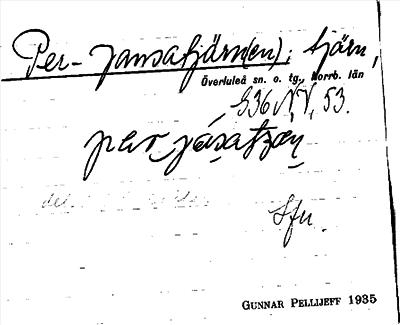 Per-Jansatjärn(en); tjärn,
Överluleå sn. o. tg., Norrb. län
G36 N.V. 53.
Sfn.
GUNNAR PELLIJEFF 1935